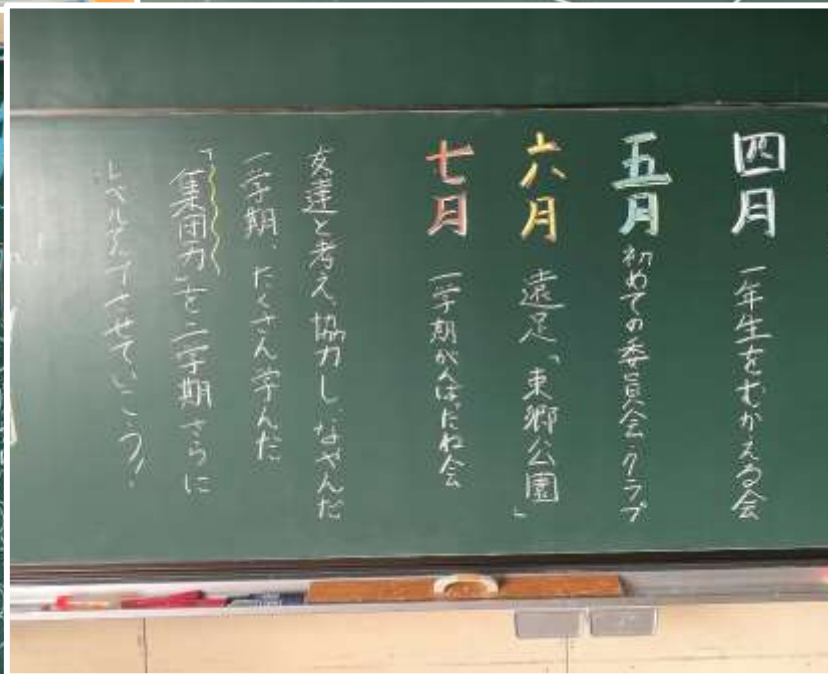 四月 一年生をむかえる会
五月 初めての委員会・クラブ
六月 遠足「東郷公園」
七月 一学期がんばったね会
友達と考え、協力し、なやんだ
一学期、たくさん学んだ
「集団力」を二学期さらに
レベルアップさせていこう!